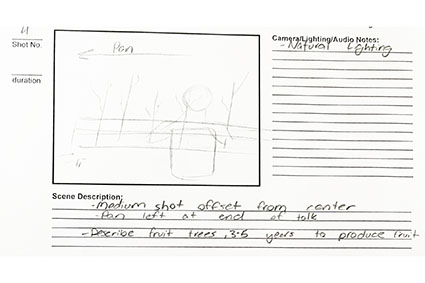 4
Shot No.
duration
Pan
Camera/Lighting/Audio Notes:
- Natural Lighting
Scene Description:
- Medium shot offset from center
- Pan left at end of talk
- Describe fruit trees, 3-5 years to produce fruit